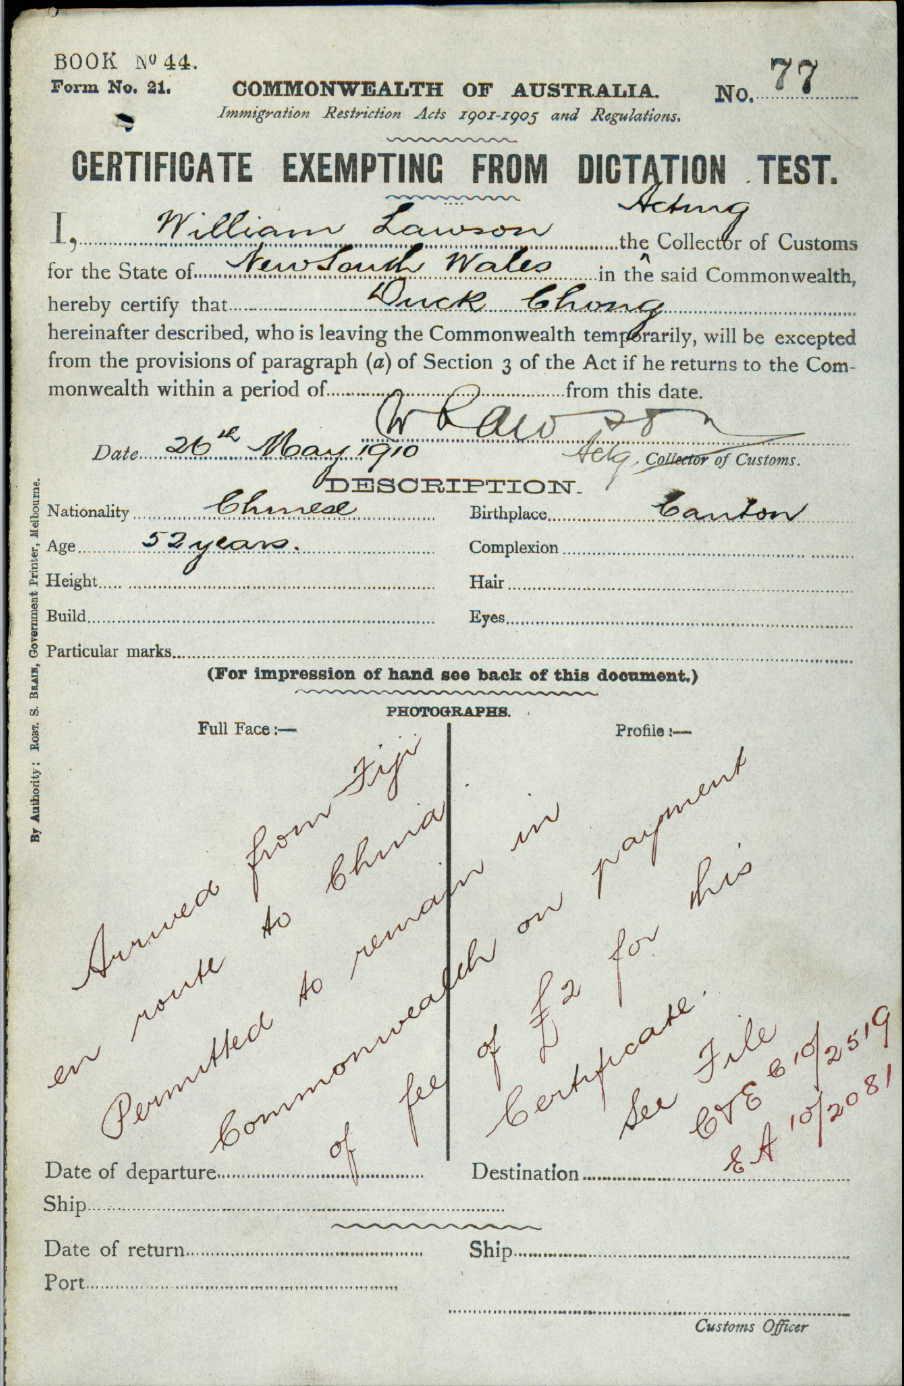 BOOK No 44.
Form No. 21.
COMMONWEALTH OF AUSTRALIA.
No. 77
Immigration Restriction Acts 1901-1905 and Regulations.
CERTIFICATE EXEMPTING FROM DICTATION TEST.
Acting
I, William Lawson the ^ Collector of Customs
for the State of New South Wales in the said Commonwealth,
hereby certify that Duck Chong
hereinafter described, who is leaving the Commonwealth temporarily, will be excepted
from the provisions of paragraph (a) of Section 3 of the Act if he returns to the Com-
monwealth within a period of from this date.
W Lawson
Date 26th May 1910 Actg. Collector of Customs.
DESCRIPTION.
Nationality Chinese Birthplace Canton
Age 52 years. Complexion
Height Hair
Build Eyes
Particular marks
(For impression of hand see back of this document.)
PHOTOGRAPHS.
Full Face:— Profile:—
Arrived from Fiji
en route to China
Permitted to remain in
Commonwealth on payment
of fee of £2 for this
Certificate.
See File
C&E C 10/2519
EA 10/2081
Date of departure Destination
Ship
Date of return Ship
Port
Customs Officer
By Authority: ROBT. S. BRAIN, Government Printer, Melbourne.